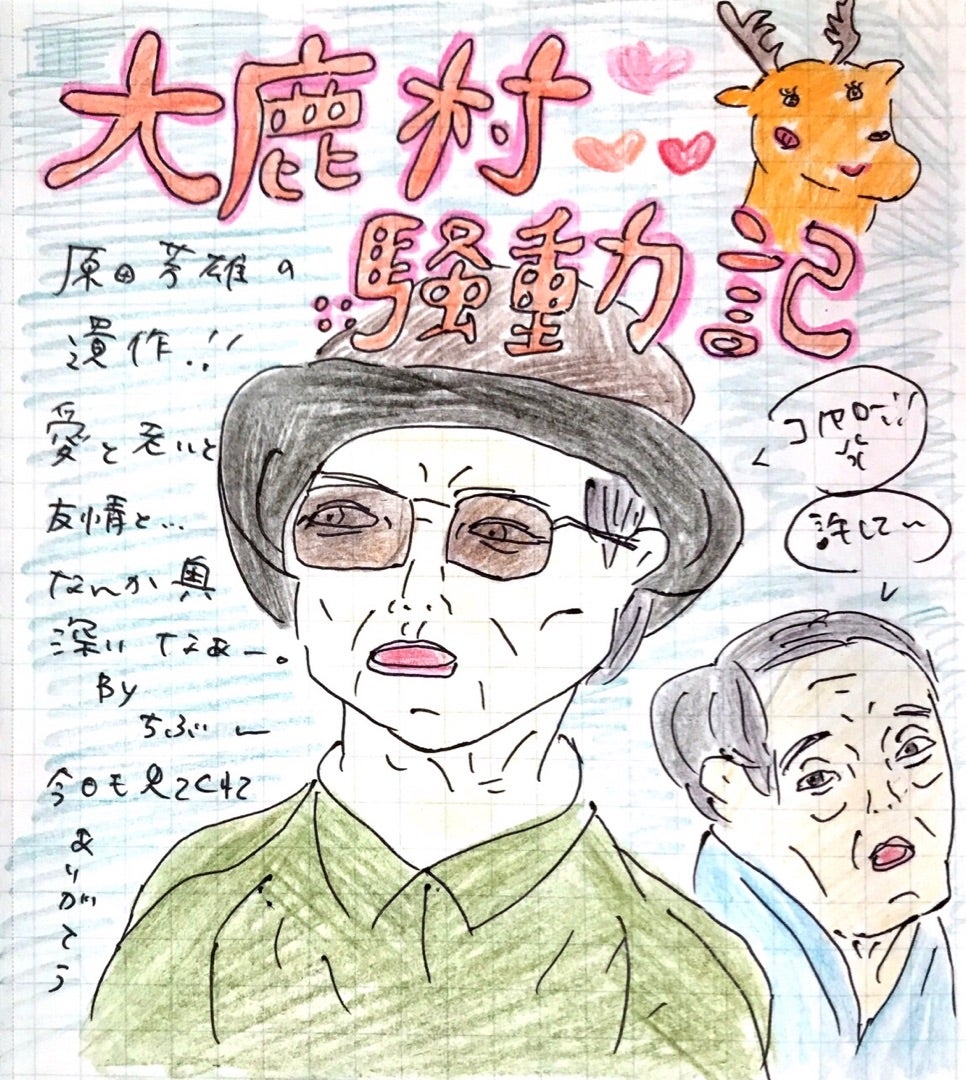 大鹿村
騒動記
原田芳雄の
遺作!!
愛と老いと
友情と…
なんか奥
深いなぁー。
By
ちぶー
今日も見てくれて
ありがとう
コノヤロー!!
許して〜